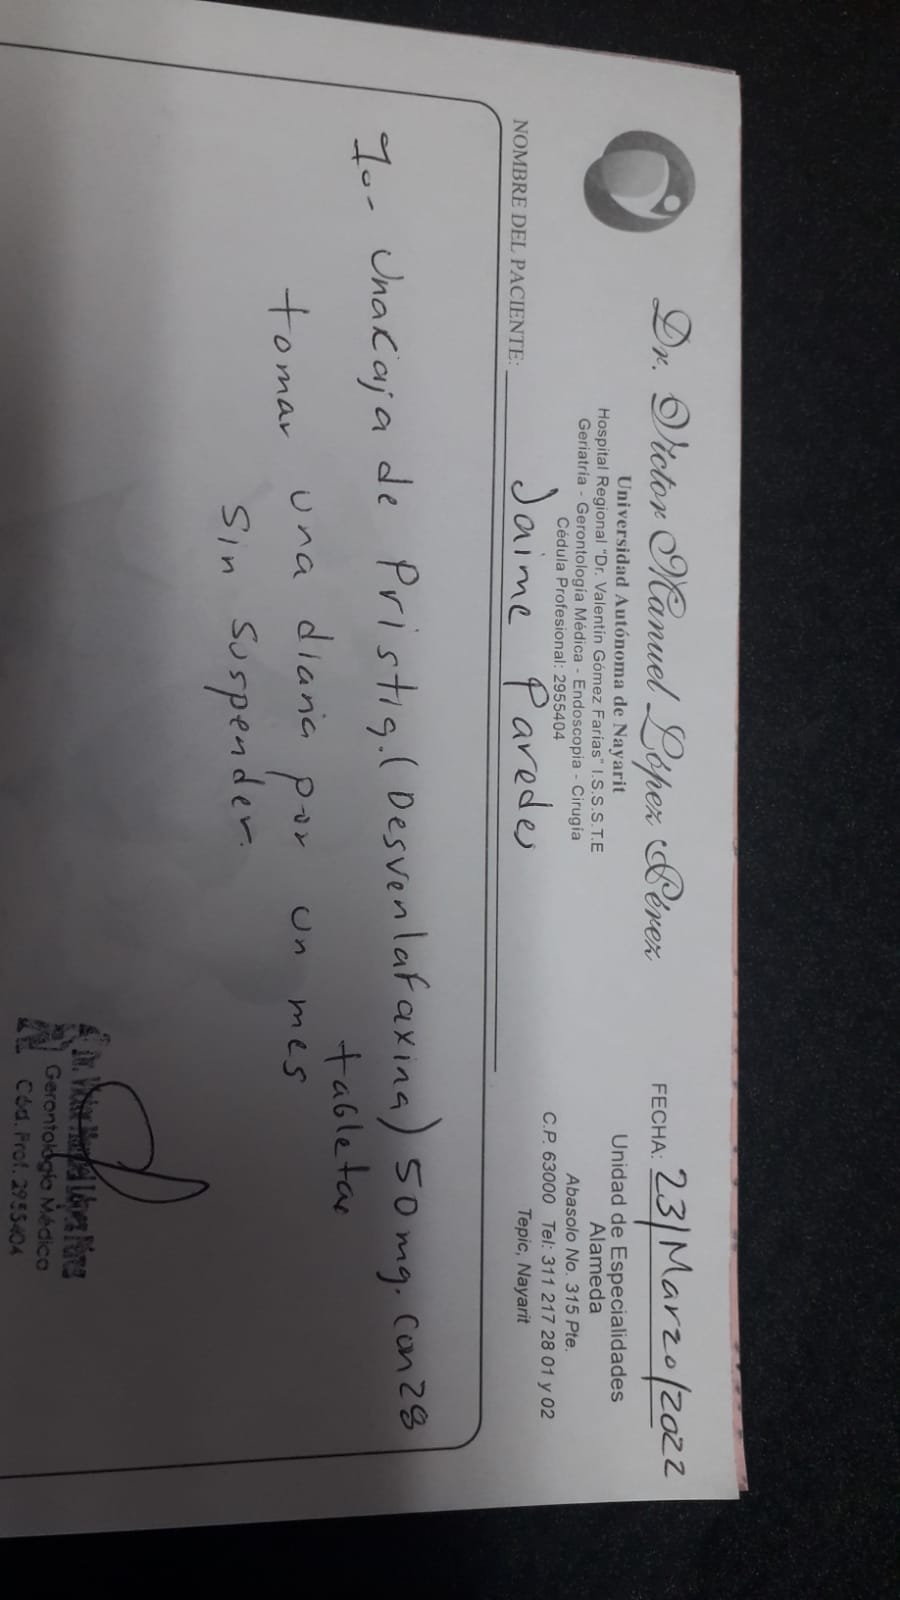 Dr. Víctor Manuel López Pérez
Universidad Autónoma de Nayarit
Hospital Regional "Dr. Valentín Gómez Farías" I.S.S.S.T.E
Geriatría - Gerontología Médica - Endoscopia - Cirugía
Cédula Profesional: 2955404
FECHA: 23/Marzo/2022
Unidad de Especialidades
Alameda
Abasolo No. 315 Pte.
C.P. 63000 Tel: 311 217 28 01 y 02
Tepic, Nayarit
NOMBRE DEL PACIENTE: Jaime Paredes
1o.- Una caja de Pristiq. (Desvenlafaxina) 50 mg. con 28
tabletas
tomar una diaria por un mes
sin suspender.
Dr. Víctor Manuel López Pérez
Gerontología Médica
Céd. Prof. 2955404